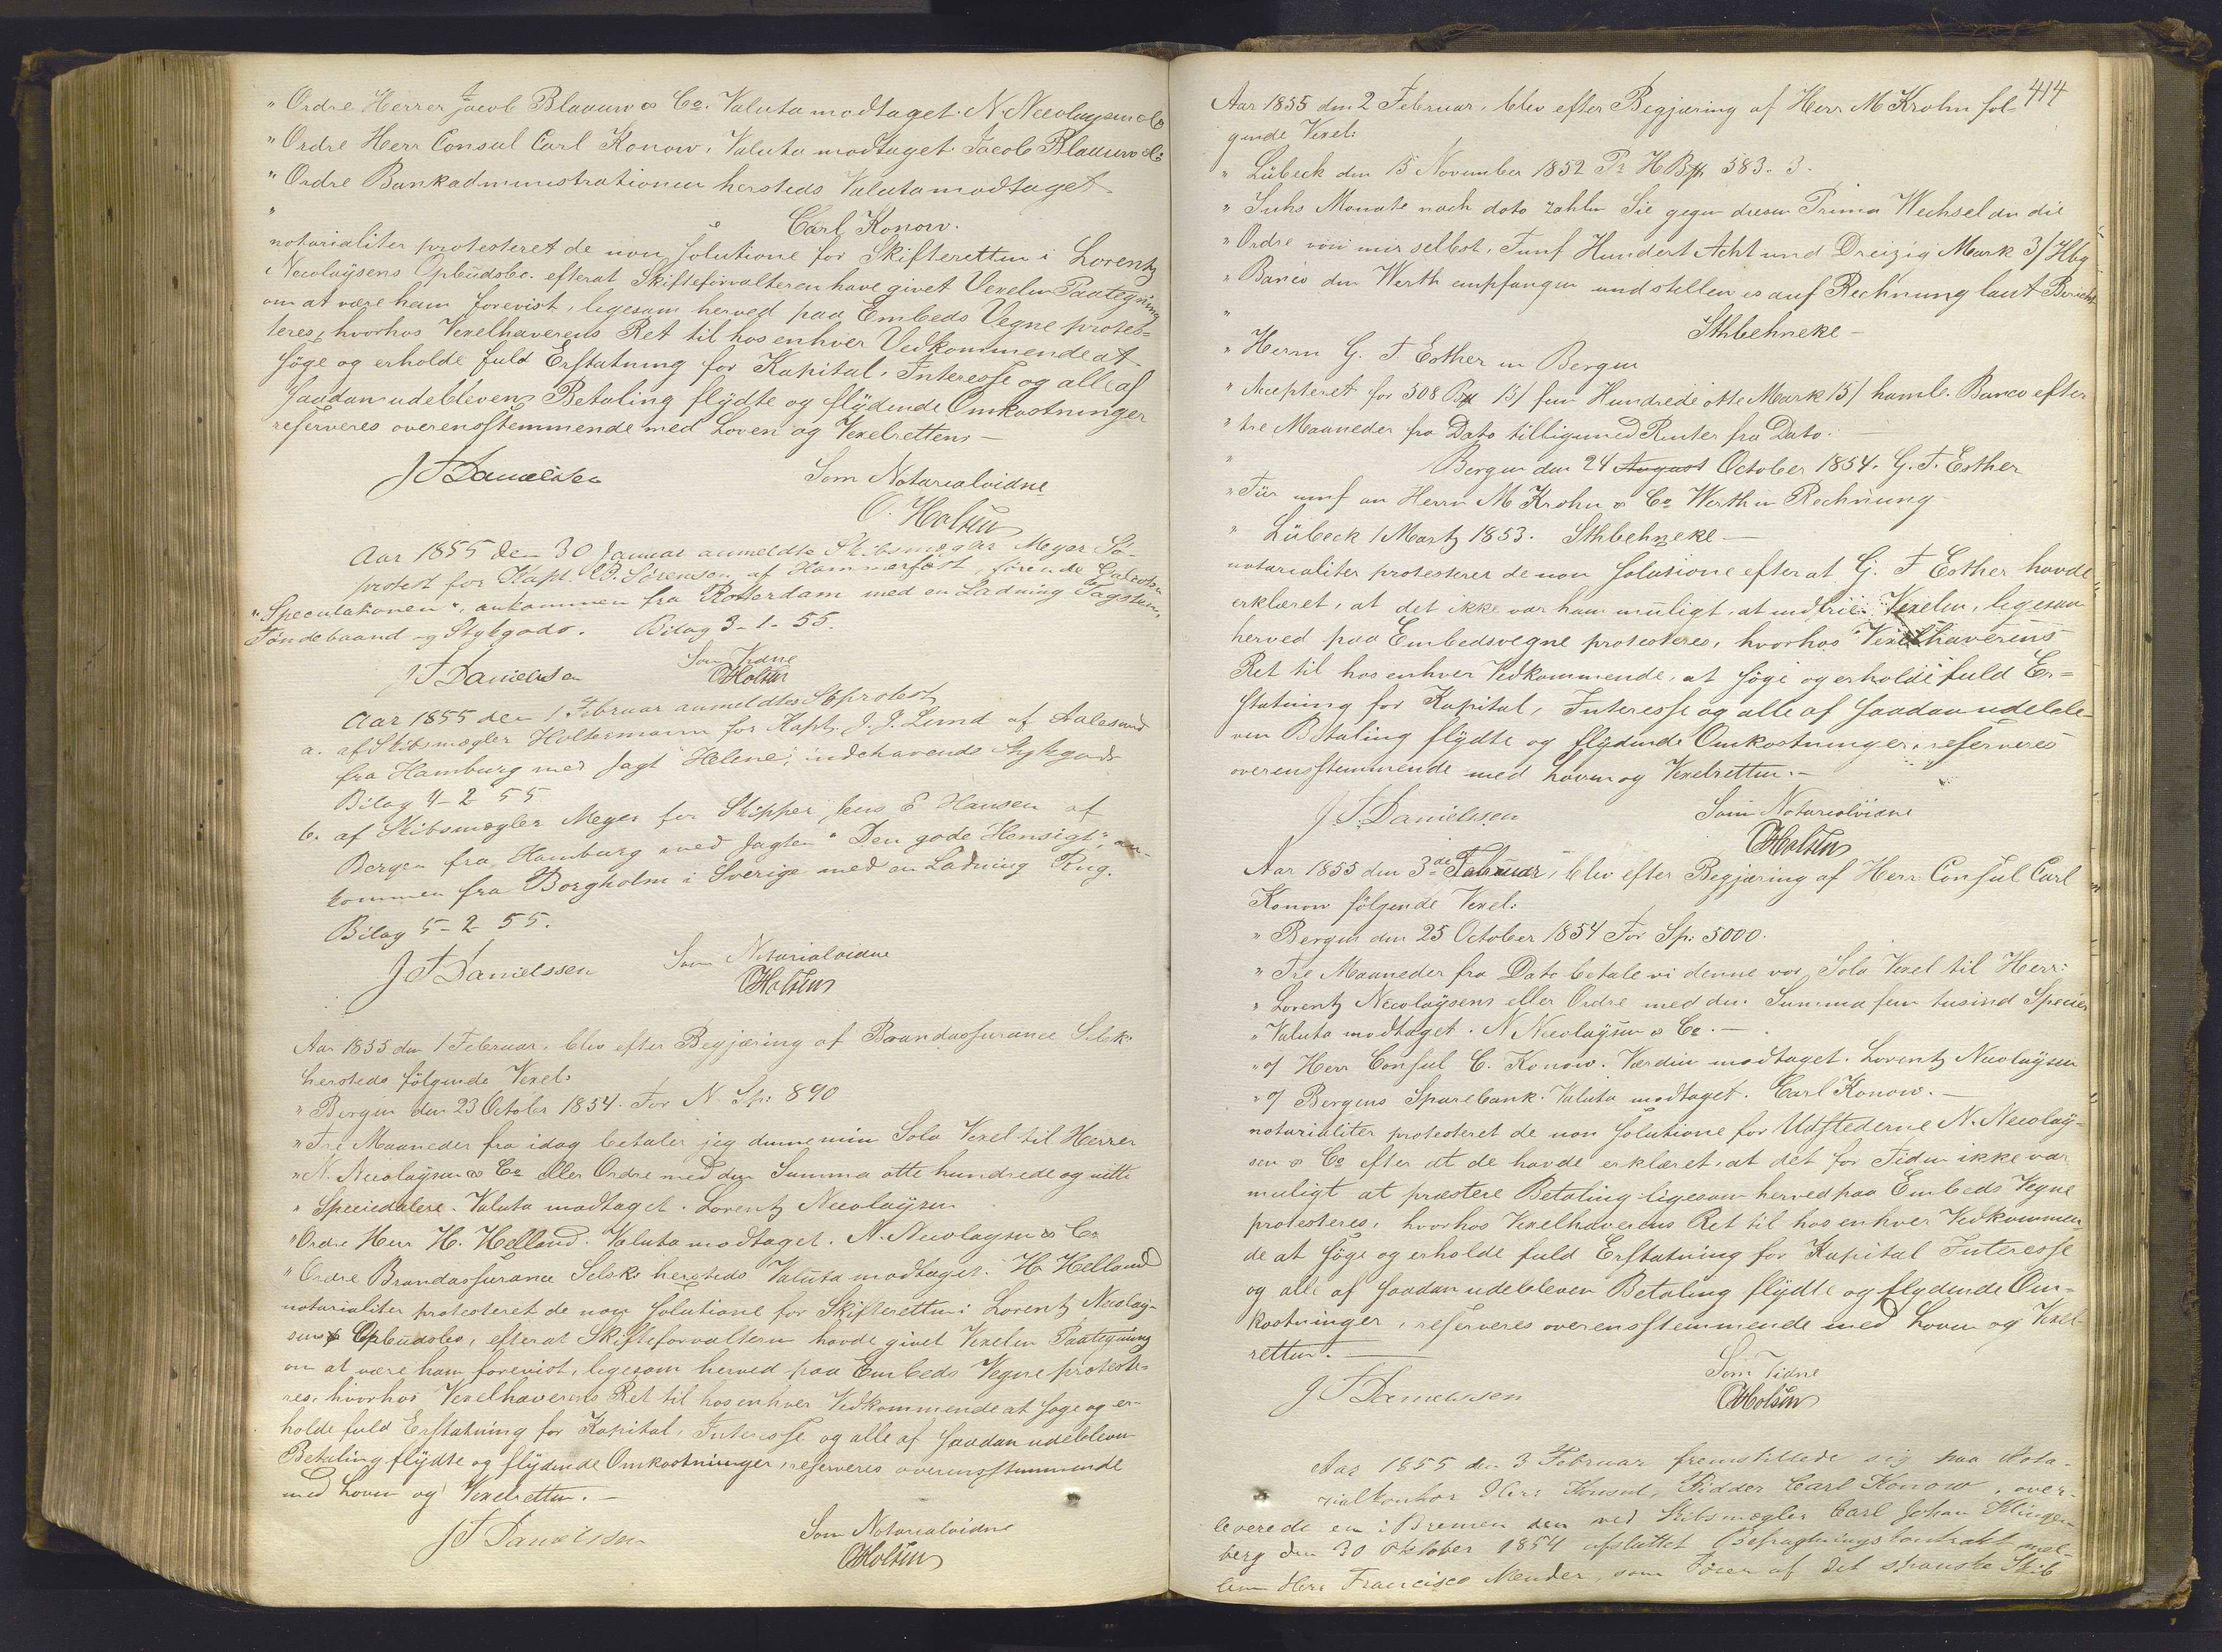 "Ordre Herrer Jacob Blaauw & Co. Valuta modtaget. N. Nicolaysen & Co
"Ordre Herr Consul Carl Konow. Valuta modtaget. Jacob Blaauw & Co
"Ordre Bankadministrationen hersteds Valuta modtaget
" Carl Konow.
notarialiter protesteret de non solutione for Skifteretten i Lorentz
Nicolaysens Opbudsbo. efterat Skifteforvalteren have givet Vexelen Paategning
om at være ham forevist, ligesom herved paa Embeds Vegne protes=
teres, hvorhos Vexelhaverens Ret til hos enhver Vedkommende at
søge og erholde fuld Erstatning for Kapital, Interesse og alle af
saadan udebleven Betaling flydte og flydende Omkostninger
reserveres overensstemmende med Loven og Vexelretten. —
J F Danielssen Som Notarialvidne
O. Holsen
Aar 1855 den 30 Januar anmeldte Skibsmægler Meyer Sö-
protest for Kapt. B. Sörensen af Hammerfest, förende Galeasen
"Speculationen", ankommen fra Rotterdam med en Ladning Tagsten,
Töndebaand og Stykgods. Bilag 3-1-55.
J F Danielssen Som Vidne
OHolsen
Aar 1855 den 1 Februar anmeldtes Söprotest
a. af Skibsmægler Holtermann for Kapt. J. J. Lund af Aalesund
fra Hamburg med Jagt "Helene", indehavende Stykgods
Bilag 4-2 55
b. af Skibsmægler Meyer for Skipper Jens E Hansen af
Bergen fra Hamburg med Jagten "Den gode Hensigt", an-
kommen fra Borgholm i Sverige med en Ladning Rug.
Bilag 5-2 55.
J F Danielssen Som Notarialvidne
OHolsen
Aar 1855 den 1 Februar, blev efter Begjæring af Brandassurance Selsk:
hersteds følgende Vexel:
" Bergen den 23 October 1854. For N. Sp: 890
" Tre Maaneder fra idag betaler jeg denne min Sola Vexel til Herrer
" N. Nicolaysen & Co eller Ordre med den Summa otte hundrede og nitti
" Speciedalere. Valuta modtaget. Lorentz Nicolaysen
"Ordre Herr H. Helland. Valuta modtaget. N. Nicolaysen & Co
" Ordre Brandassurance Selsk: hersteds Valuta modtaget. H. Helland
notarialiter protesteret de non solutione for Skifteretten i Lorentz Nicolay-
sens Opbudsbo, efterat Skifteforvalteren havde givet Vexelen Paategning
om at være ham forevist, ligesom herved paa Embeds Vegne proteste-
res, hvorhos Vexelhaverens Ret til hos enhver Vedkommende at søge og er-
holde fuld Erstatning for Kapital, Interesse og alle af saadan udebleven
Betaling flydte og flydende Omkostninger, reserveres overensstemmende
med Loven og Vexelretten. —
J F Danielssen Som Notarialvidne
OHolsen
414
Aar 1855 den 2 Februar, blev efter Begjæring af Herr M Krohn føl-
gende Vexel:
" Lübeck den 15 November 1852 Pr HB 583. 3.
" Sechs Monate nach dato zahlen Sie gegen diesen Prima Wechsel an die
" Ordre von mir selbst, Funf Hundert Acht und Dreizig Mark 3/ Hbg
" Banco den Werth empfangen und stellen es auf Rechnung laut Bericht
" Sthbehneke —
" Herrn G. F. Esther in Bergen
" Accepteret for 508 B 15/ fem Hundrede otte Mark 15/ hamb. Banco efter
" tre Maaneder fra Dato tilligemed Renter fra Dato. —
" Bergen den 24 August October 1854. G. F. Esther
" Für umf an Herrn M Krohn & Co Werth in Rechnung
" Lübeck 1 Martz 1853. Sthbehneke —
notarialiter protesteres de non solutione efterat G. F Esther havde
erklæret, at det ikke var ham muligt at indfrie Vexelen, ligesom
herved paa Embedsvegne protesteres, hvorhos Vexelhaverens
Ret til hos enhver Vedkommende, at søge og erholde fuld Er=
statning for Kapital, Interesse og alle af saadan udeble-
ven Betaling flydte og flydende Omkostninger, reserveres
overensstemmende med Loven og Vexelretten. —
J. F. Danielssen Som Notarialvidne
OHolsen
Aar 1855 den 3de Februar, blev efter Begjæring af Herr Consul Carl
Konow følgende Vexel:
" Bergen den 25 October 1854 For Sp: 5000.
" Tre Maaneder fra Dato betale vi denne vor Sola Vexel til Herr:
" Lorentz Nicolaysens eller Ordre med den Summa fem tusind Species
" Valuta modtaget. N Nicolaysen & Co. —
" of Herr Consul C. Konow. Værdien modtaget. Lorentz Nicolaysen
" of Bergens Sparebank. Valuta modtaget. Carl Konow. —
notarialiter protesteret de non solutione for Udstederne N. Nicolay-
sen & Co efter at de havde erklæret, at det for Tiden ikke var
muligt at præstere Betaling ligesom herved paa Embeds Vegne
protesteres, hvorhos Vexelhaverens Ret til hos enhver Vedkommen-
de at søge og erholde fuld Erstatning for Kapital Interesse
og alle af saadan udebleven Betaling flydte og flydende Om=
kostninger, reserveres overensstemmende med Loven og Vexel-
retten. —
J F Danielssen Som Vidne
OHolsen
Aar 1855 den 3 Februar fremstillede sig paa Nota-
rialkontor Herr Konsul, Ridder Carl Konow, over-
leverede en i Bremen den ved Skibsmægler Carl Johan Klingen
berg den 30 Oktober 1854 afsluttet Befragtningskontrakt mel-
lem Herr Francisco Mender, som Förer af det spanske Skib